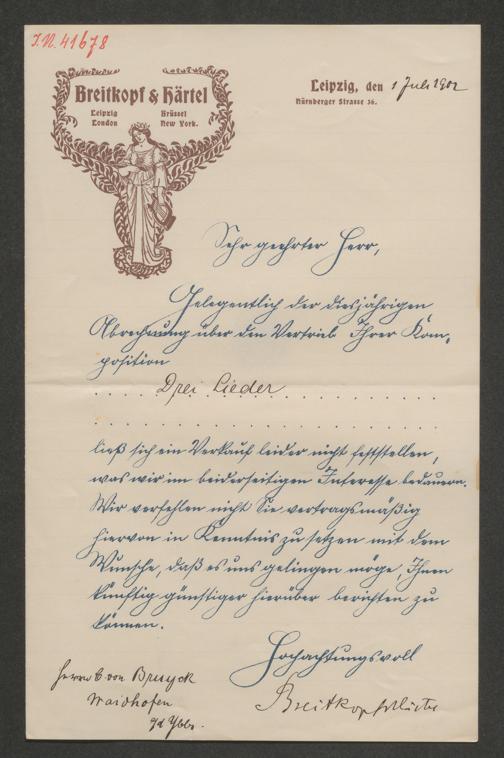 I.N. 41678
Breitkopf & Härtel
Leipzig Brüssel
London New York.
Leipzig, den 1 Juli 1902
Nürnberger Strasse 36.
Sehr geehrter Herr,
Gelegentlich der diesjährigen
Abrechnung über den Vertrieb Ihrer Kom-
position
Drei Lieder
ließ sich ein Verkauf leider nicht feststellen,
was wir im beiderseitigen Interesse bedauern.
Wir verfehlen nicht Sie vertragsmäßig
hiervon in Kenntnis zu setzen mit dem
Wunsche, daß es uns gelingen möge, Ihnen
künftig günstiger hierüber berichten zu
können.
Hochachtungsvoll
Breitkopf & Härtel
Herrn C von Bruyck
Waidhofen
a/d Ybbs.